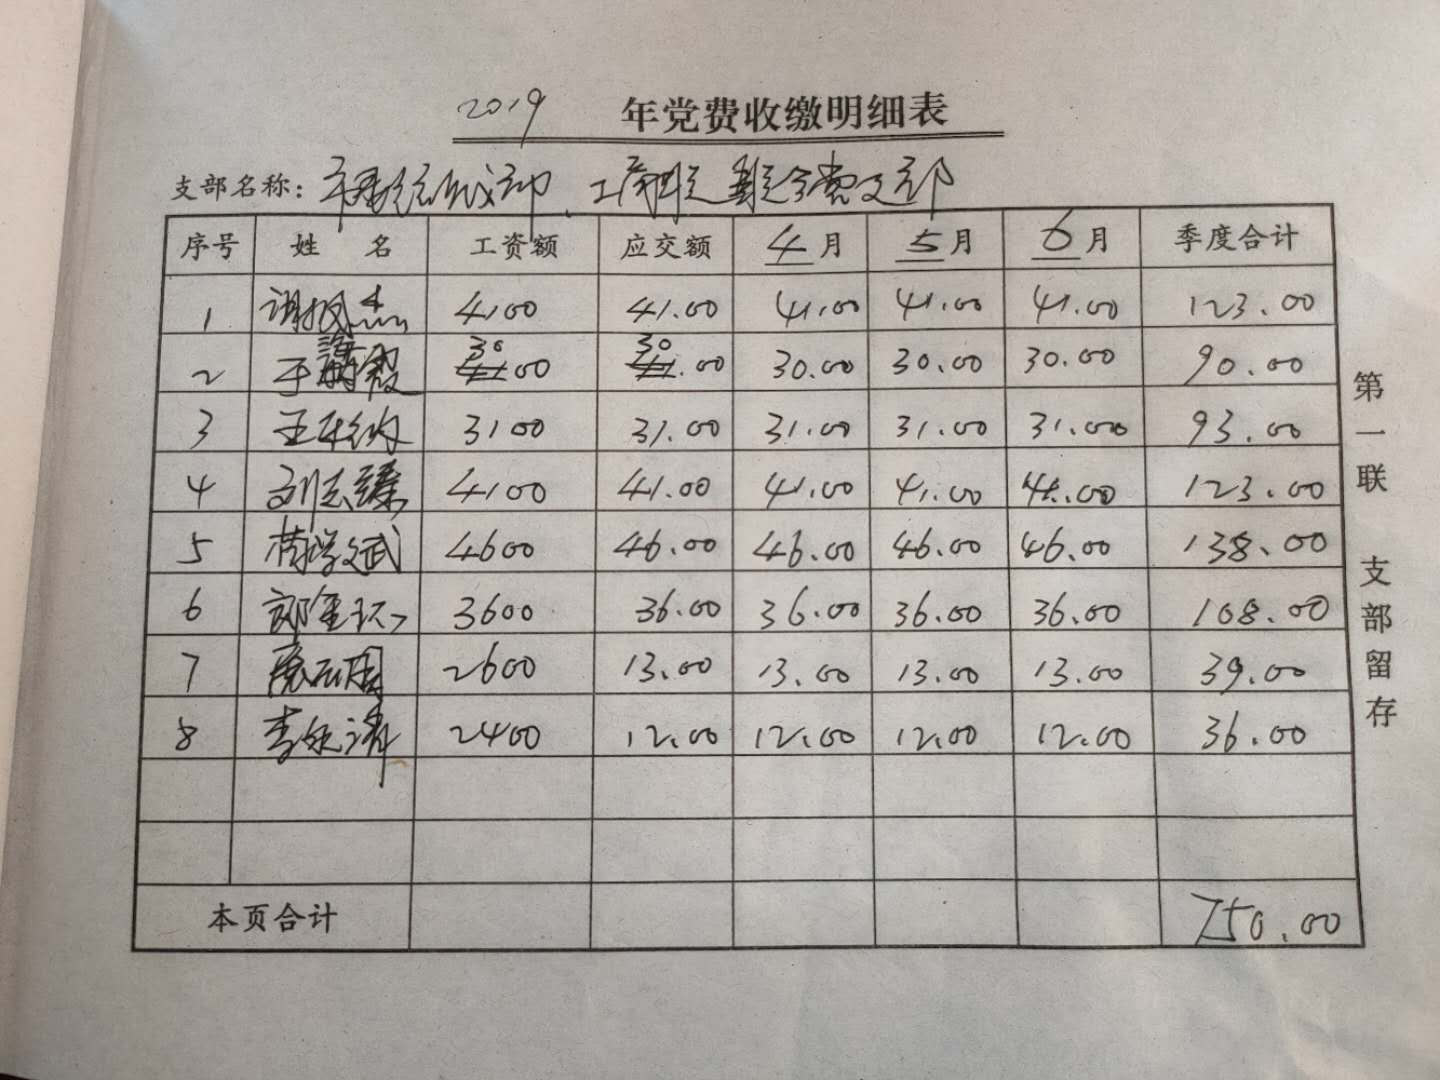 2019 年党费收缴明细表
支部名称: 工商联 党支部
序号 姓名 工资额 应交额 4月 5月 6月 季度合计
1 4100 41.00 41.00 41.00 41.00 123.00
2 于 3000 30.00 30.00 30.00 30.00 90.00
3 王 3100 31.00 31.00 31.00 31.00 93.00
4 刘志臻 4100 41.00 41.00 41.00 41.00 123.00
5 4600 46.00 46.00 46.00 46.00 138.00
6 3600 36.00 36.00 36.00 36.00 108.00
7 2600 13.00 13.00 13.00 13.00 39.00
8 李 2400 12.00 12.00 12.00 12.00 36.00
本页合计 750.00
第一联 支部留存